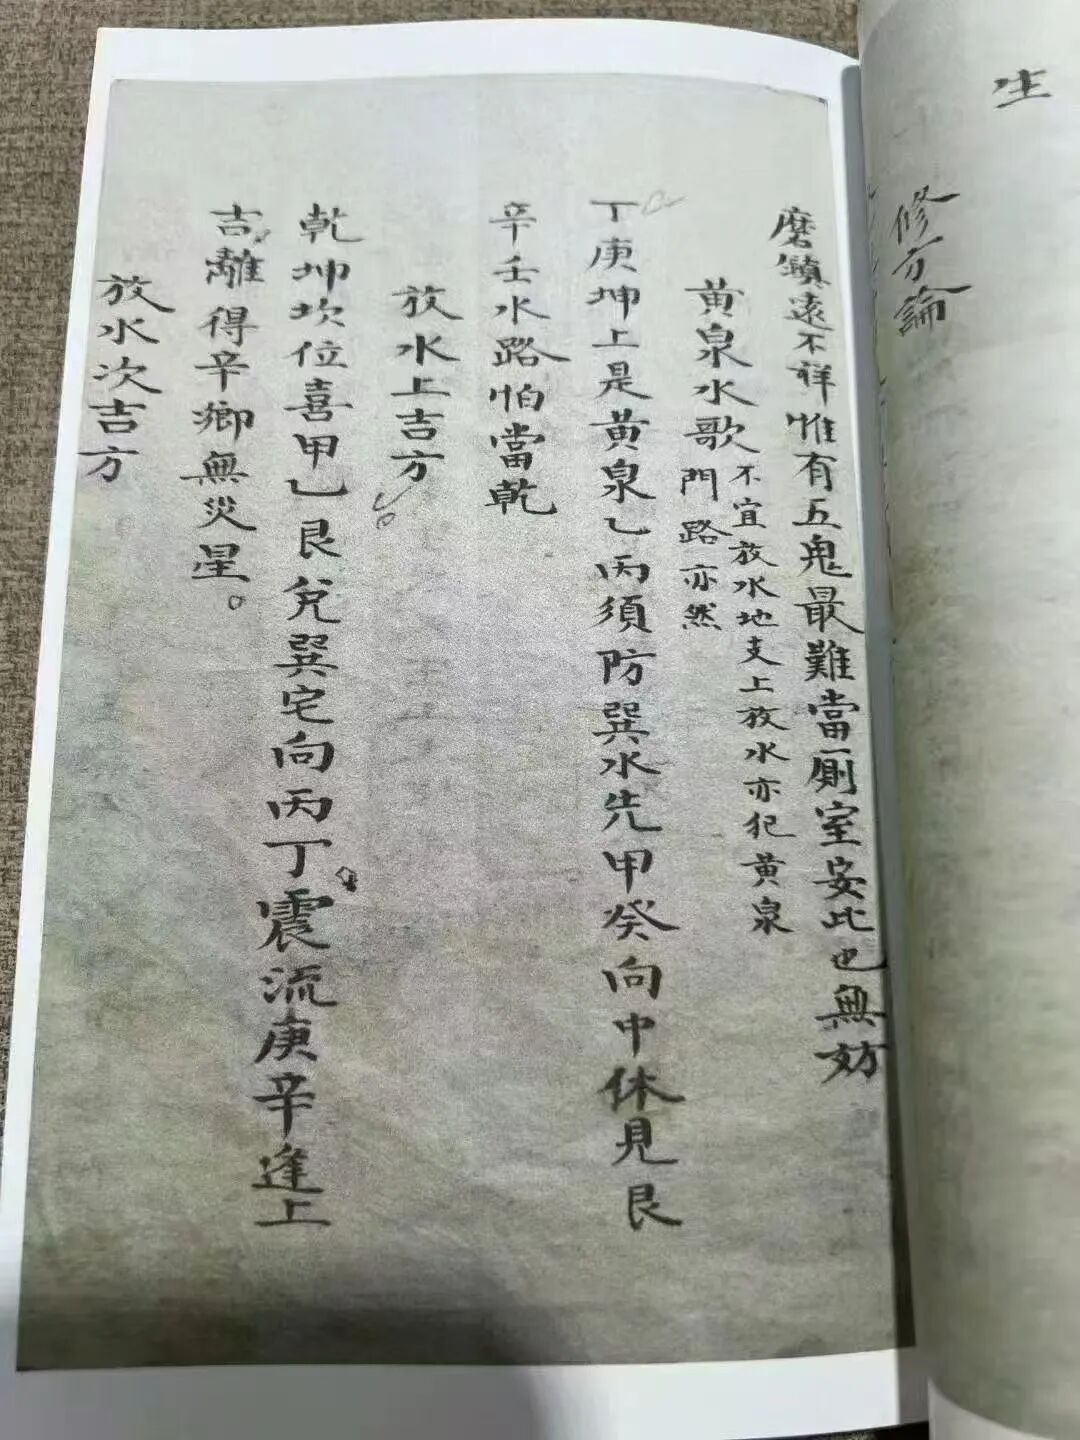 生
修方論
磨鎮遠不祥惟有五鬼最難當厠室安此也無妨
黄泉水歌
不宜放水地支上放水亦犯黄泉
門路亦然
丁庚坤上是黄泉乙丙須防巽水先甲癸向中休見艮
辛壬水路怕當乾
放水上吉方
乾坤坎位喜甲乙艮兊巽宅向丙丁震流庚辛逢上
吉離得辛鄉無災星。
放水次吉方